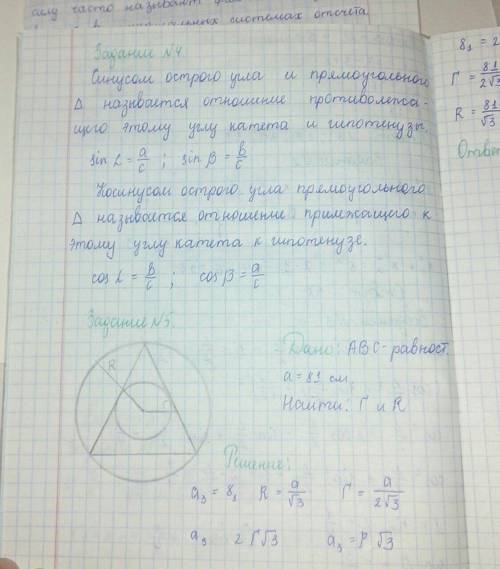 силу часто называют
системах отсчета
Задание №4.
Синусом острого угла и прямоугольного
Δ называется отношение противолежа-
щего этому углу катета и гипотенузы.
sin L = a/c ; sin β = b/c
Косинусом острого угла прямоугольного
Δ называется отношение прилежащего к
этому углу катета к гипотенузе.
cos L = b/c ; cos β = a/c
Задание №5.
R
r
Дано: ABC - равност.
a = 81 см
Найти: r и R
Решение:
a₃ = 81 R = a/√3 r = a/2√3
a₃ 2 r√3 a₃ = P √3
81 = 2
r = 81/2√3
R = 81/√3
Ответ